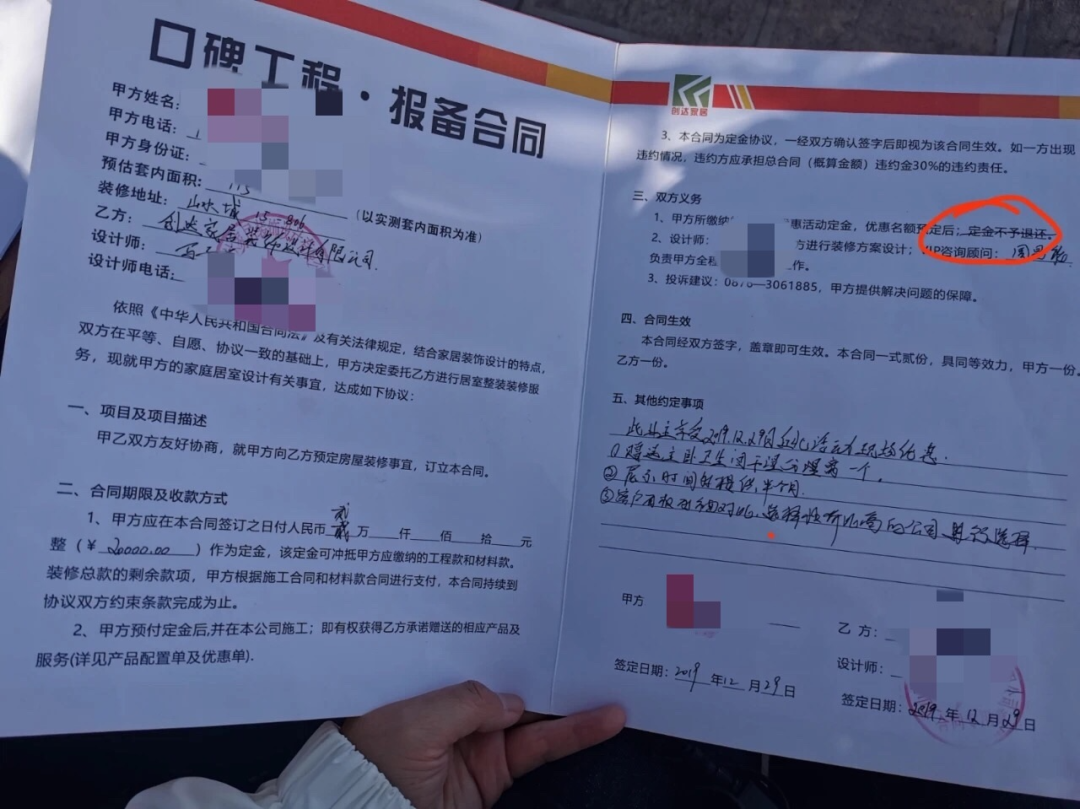 口碑工程·报备合同
甲方姓名：
甲方电话：
甲方身份证：
预估套内面积：115
（以实测套内面积为准）
装修地址：山水城 15 806
乙方：创达家居装饰设计有限公司
设计师：
设计师电话：
依照《中华人民共和国合同法》及有关法律规定，结合家居装饰设计的特点，
双方在平等、自愿、协议一致的基础上，甲方决定委托乙方进行居室整装装修服
务，现就甲方的家庭居室设计有关事宜，达成如下协议：
一、项目及项目描述
甲乙双方友好协商，就甲方向乙方预定房屋装修事宜，订立本合同。
二、合同期限及收款方式
1、甲方应在本合同签订之日付人民币 贰 万 仟 佰 拾 元
整（￥ 20000.00 ）作为定金，该定金可冲抵甲方应缴纳的工程款和材料款。
装修总款的剩余款项，甲方根据施工合同和材料款合同进行支付，本合同持续到
协议双方约束条款完成为止。
2、甲方预付定金后,并在本公司施工；即有权获得乙方承诺赠送的相应产品及
服务(详见产品配置单及优惠单).
创达家居
3、本合同为定金协议，一经双方确认签字后即视为该合同生效。如一方出现
违约情况，违约方应承担总合同（概算金额）违约金30%的违约责任。
三、双方义务
1、甲方所缴纳 惠活动定金，优惠名额预定后；定金不予退还。
2、设计师： 方进行装修方案设计；VIP咨询顾问：
负责甲方全程 作。
3、投诉建议：0870—3061885，甲方提供解决问题的保障。
四、合同生效
本合同经双方签字，盖章即可生效。本合同一式贰份，具同等效力，甲方一份，
乙方一份。
五、其他约定事项
此业主享受2019.12.29日 活动现场优惠.
①赠送主卧卫生间干湿分 一个.
②
③客户有权对 对比,选择性价比高的公司,进行选择.
甲方
签定日期：2019 年 12 月 29 日
乙方：
设计师：
签定日期：2019 年 12 月 29 日